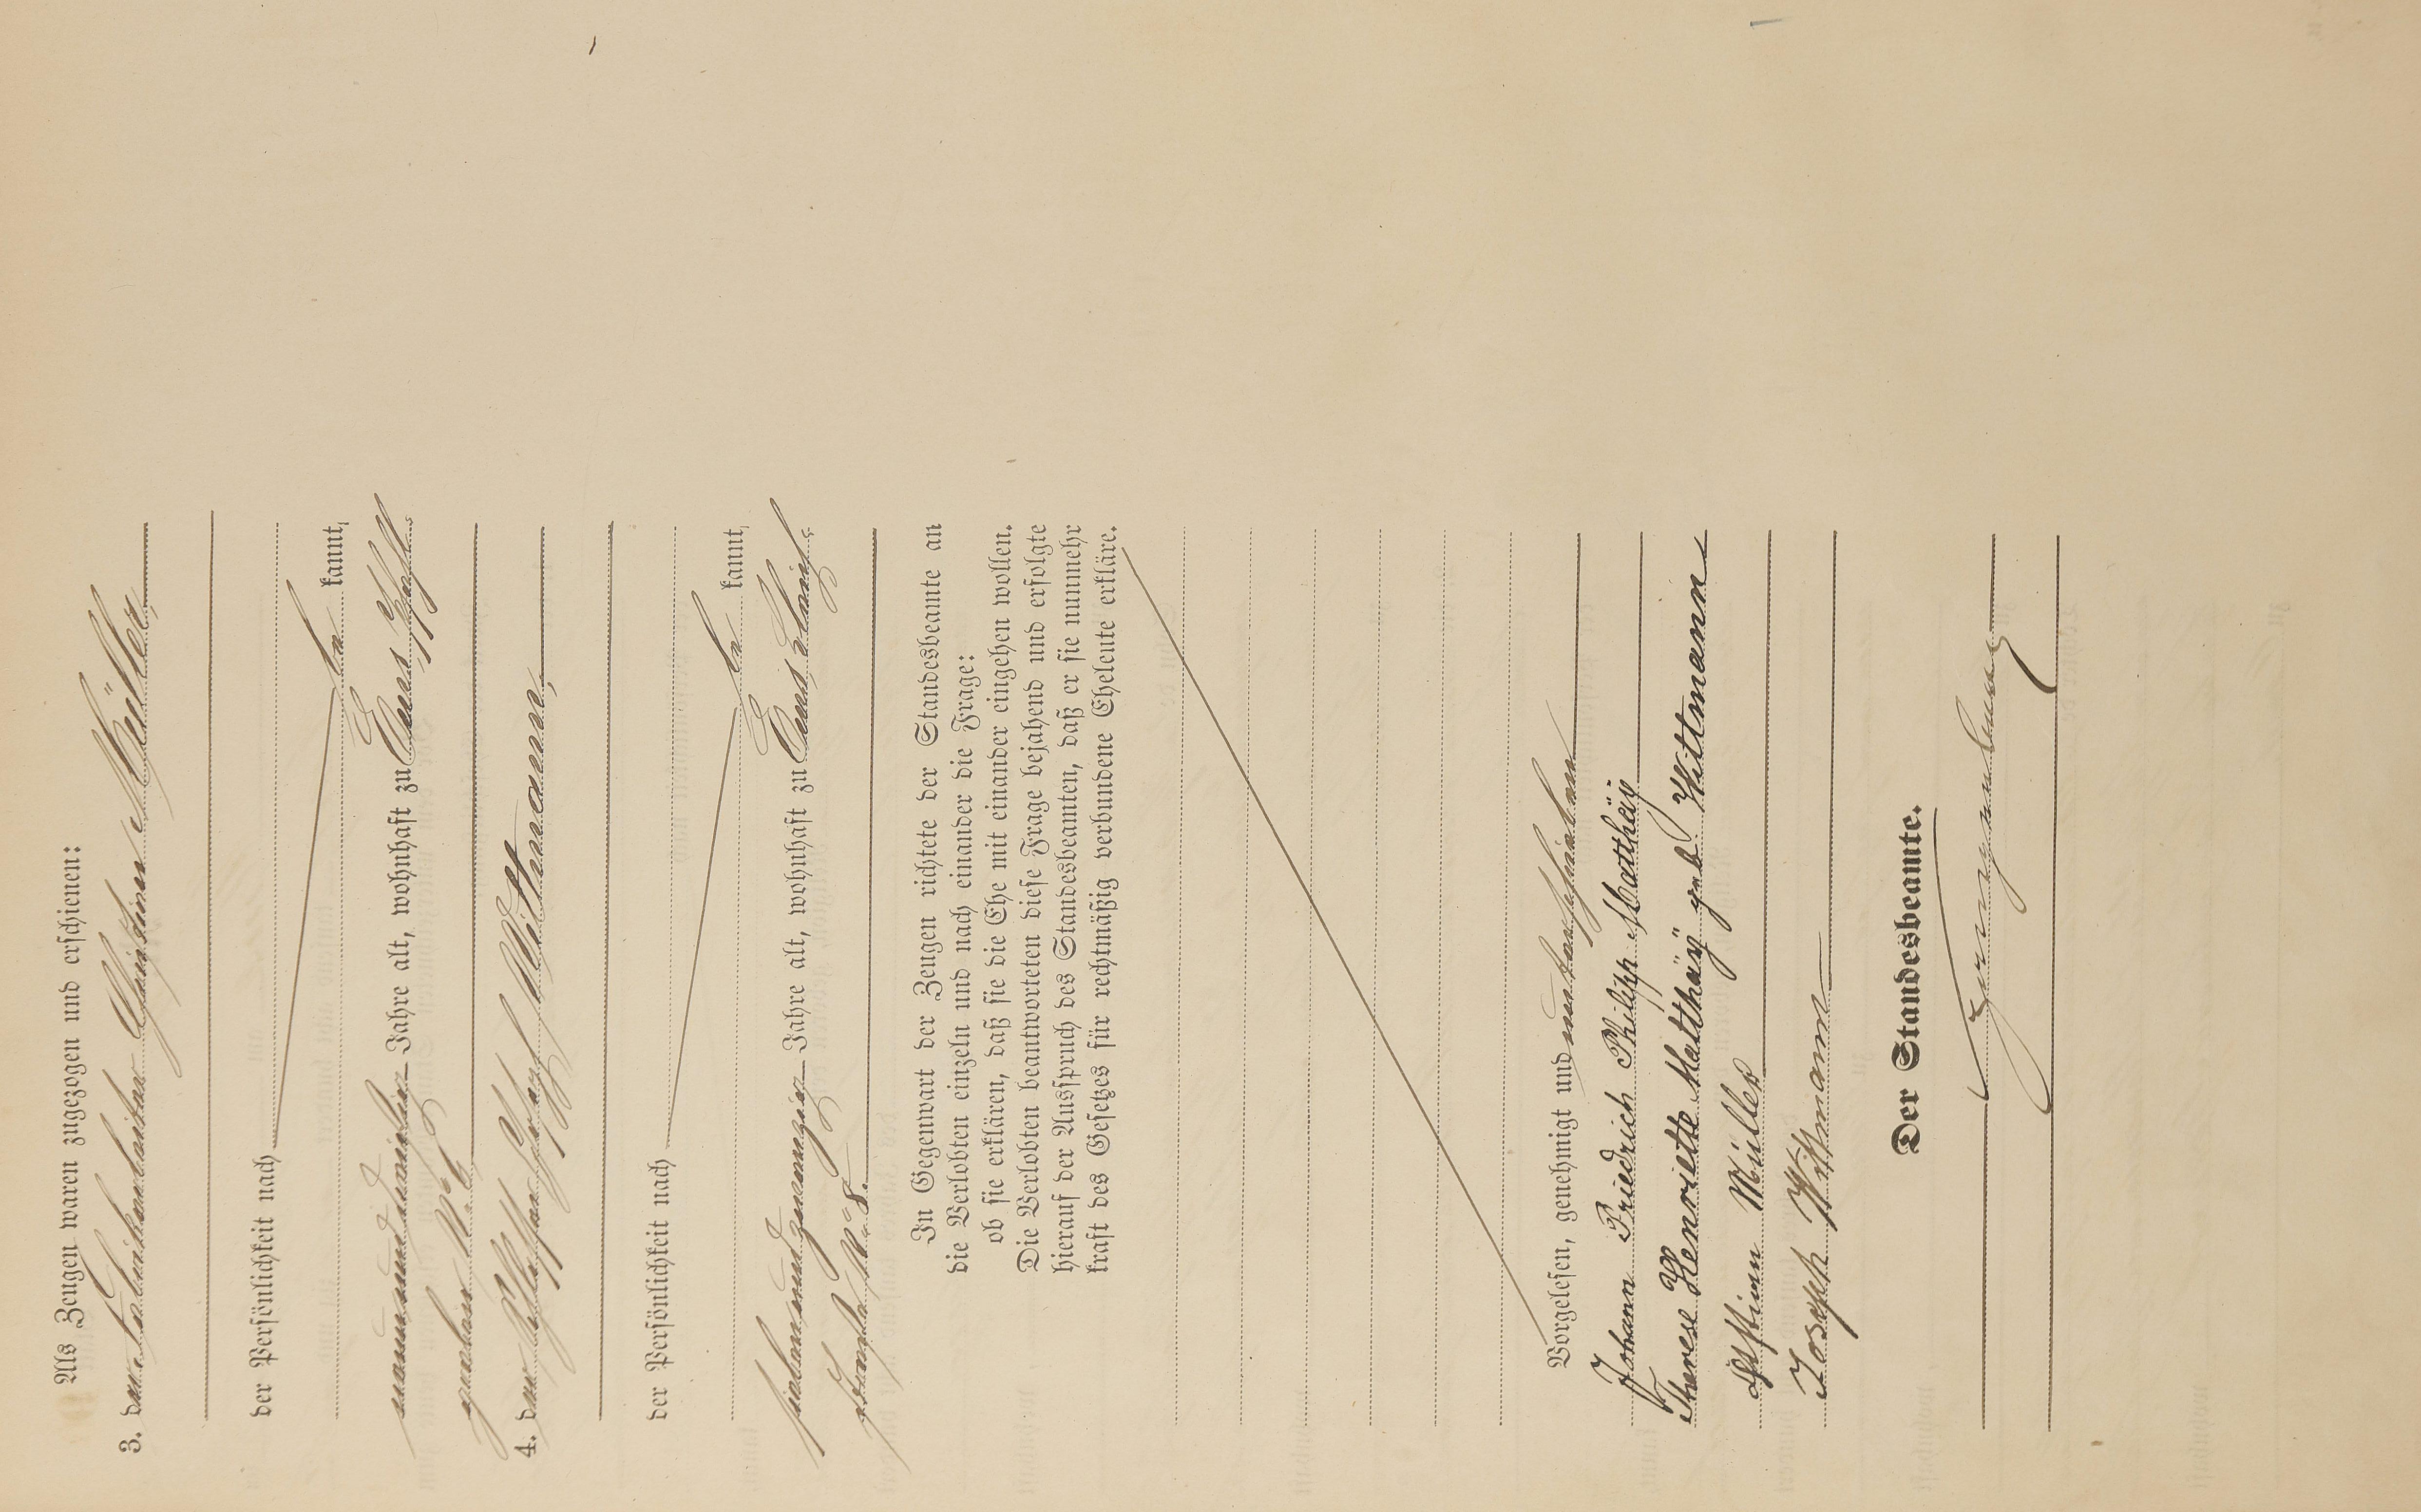 Als Zeugen waren zugezogen und erschienen:
3. der Fabrikarbeiter Christian Müller,
der Persönlichkeit nach
be kannt,
neunundvierzig Jahre alt, wohnhaft zu Ems, Pfahl-
graben No 6
4. der Schlosser Joseph Wittmann,
der Persönlichkeit nach
be kannt,
siebenundzwanzig Jahre alt, wohnhaft zu Ems,
No 8.
In Gegenwart der Zeugen richtete der Standesbeamte an
die Verlobten einzeln und nach einander die Frage:
ob sie erklären, daß sie die Ehe mit einander eingehen wollen.
Die Verlobten beantworteten diese Frage bejahend und erfolgte
hierauf der Ausspruch des Standesbeamten, daß er sie nunmehr
kraft des Gesetzes für rechtmäßig verbundene Eheleute erkläre.
Vorgelesen, genehmigt und unterschrieben
Johann Friedrich Philipp Matthäy
Therese Henriette Matthäy geb. Wittmann
Christian Müller
Joseph Wittmann
Der Standesbeamte.